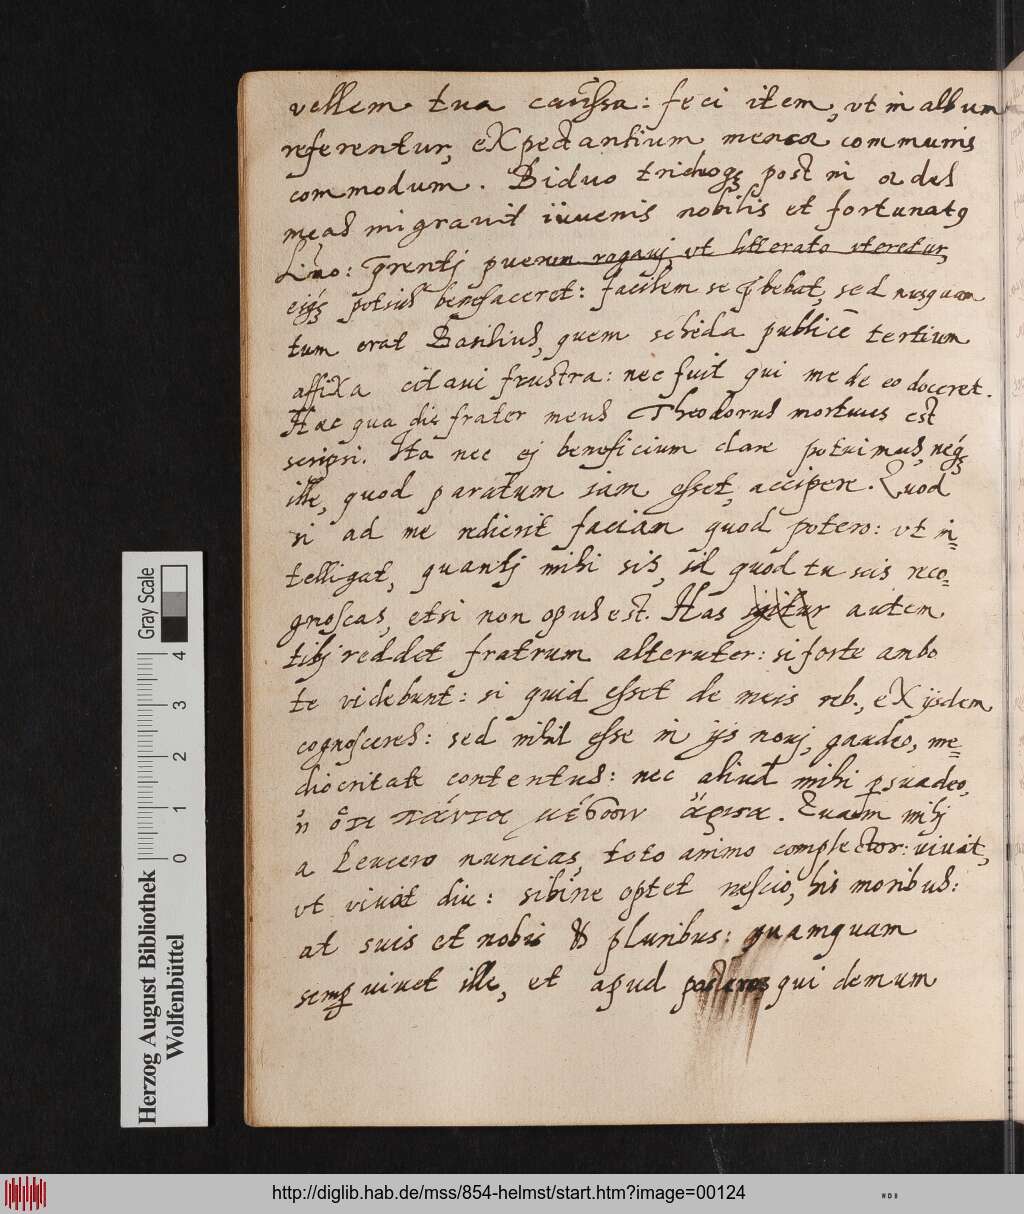 vellem tua caussa: feci item, ut in album
referentur, expectantium mensa communis
commodum. Biduo post in aedes
meas migravit iuvenis nobilis et fortunatꝯ
Livo: puerum rogavj ut litterato uteretur,
potius benefaceret: facilem se pbebat, sed nusquam
tum erat Basilius, quem scheda publice tertium
affixa citavi frustra: nec fuit qui me de eo doceret.
Hac qua die frater meus Theodorus mortuus est
scripsi. Ita nec ej beneficium dare potuimus, neqꝫ
ille, quod paratum iam esset, accipere. Quod
si ad me redierit faciam quod potero: ut in=
telligat, quantj mihi sis, id quod tu scis reco=
gnoscas, etsi non opus est. Has igitur autem
tibj reddet fratrum alteruter: si forte ambo
te videbunt: si quid esset de meis reb., ex ijsdem
cognosceres: sed nihil esse in ijs novj gaudeo, me=
diocritate contentus: nec aliud mihi psuadeo,
ἢ ὅτι πάντα μέσον ἄριστα. Quam mihj
a Leucero nuncias, toto animo complector: vivat,
ut vivat diu: sibine optet nescio, his moribus:
at suis et nobis & pluribus: quamquam
semp vivet ille, et apud posteros qui demum
Herzog August Bibliothek
Wolfenbüttel
0 1 2 3 4
Gray Scale
http://diglib.hab.de/mss/854-helmst/start.htm?image=00124